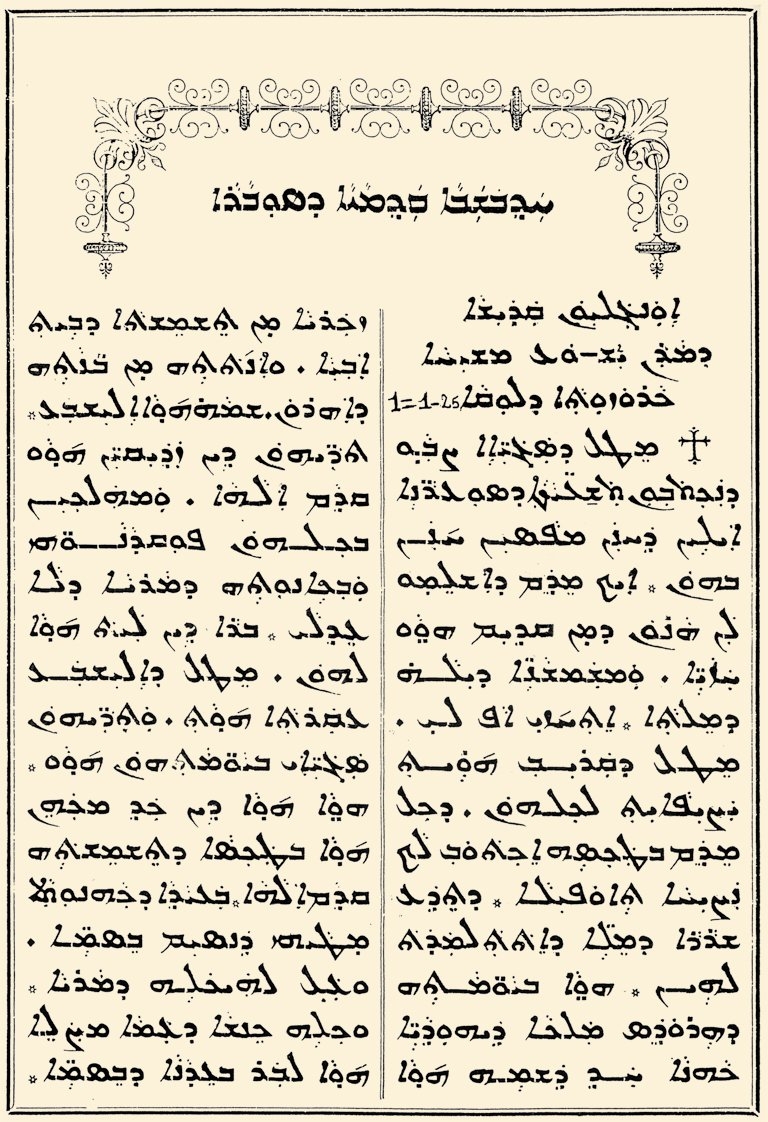 ܚܕܒܫܒܐ ܩܕܡܝܐ ܕܣܘܒܪܐ
ܐܘܢܓܠܝܘܢ ܩܕܝܫܐ
ܕܡܪܢ ܝܫܘܥ ܡܫܝܚܐ
ܟܪܘܙܘܬܐ ܕܠܘܩܐ 1=1-25
ܡܛܠ ܕܣܓܝܐܐ ܨܒܘ
ܕܢܟܬܒܘܢ ܬܫܥܝܬܐ ܕܣܘܥܪܢܐ
ܐܝܠܝܢ ܕܚܢܢ ܡܦܣܝܢ ܚܢܢ
ܒܗܘܢ܀ ܐܝܟ ܡܕܡ ܕܐܫܠܡܘ
ܠܢ ܗܢܘܢ ܕܡܢ ܩܕܝܡ ܗܘܘ
ܚܙܝܐ . ܘܡܫܡܫܢܐ ܕܝܠܗ
ܕܡܠܬܐ܀ ܐܬܚܙܝ ܐܦ ܠܝ .
ܡܛܠ ܕܩܪܝܒ ܗܘܝܬ
ܝܨܝܦܐܝܬ ܠܟܠܗܘܢ . ܕܟܠ
ܡܕܡ ܒܛܟܣܗ ܐܟܬܘܒ ܠܟ
ܢܨܝܚܐ ܬܐܘܦܝܠܐ ܀ ܕܬܕܥ
ܫܪܪܐ ܕܡܠܐ ܕܐܬܬܠܡܕܬ
ܠܗܝܢ ܀ ܗܘܐ ܒܝܘܡܬܗ
ܕܗܪܘܕܣ ܡܠܟܐ ܕܝܗܘܕܝܐ
ܟܗܢܐ ܚܕ ܕܫܡܗ ܗܘܐ
ܙܟܪܝܐ ܡܢ ܬܫܡܫܬܐ ܕܒܝܬ
ܐܒܝܐ . ܘܐܢܬܬܗ ܡܢ ܒܢܬܗ
ܕܐܗܪܘܢ. ܫܡܗ ܗܘܐ ܐܠܝܫܒܥ܀
ܬܪܝܗܘܢ ܕܝܢ ܙܕܝܩܝܢ ܗܘܘ
ܩܕܡ ܐܠܗܐ . ܘܡܗܠܟܝܢ
ܒܟܠܗܘܢ ܦܘܩܕܢܘܗܝ
ܘܒܟܐܢܘܬܗ ܕܡܪܝܐ ܕܠܐ
ܥܕܠܝ ܀ ܒܪܐ ܕܝܢ ܠܝܬ ܗܘܐ
ܠܗܘܢ . ܡܛܠ ܕܐܠܝܫܒܥ
ܥܩܪܬܐ ܗܘܬ . ܘܬܪܝܗܘܢ
ܣܓܝܐܝ ܒܝܘܡܬܗܘܢ ܗܘܘ ܀
ܗܘܐ ܗܘܐ ܕܝܢ ܟܕ ܡܟܗܢ
ܗܘܐ ܒܛܟܣܐ ܕܬܫܡܫܬܗ
ܩܕܡ ܐܠܗܐ܀ ܒܥܝܕܐ ܕܟܗܢܘܬܐ
ܡܛܝܗܝ ܕܢܣܝܡ ܒܣܡܐ .
ܘܥܠ ܠܗܝܟܠܗ ܕܡܪܝܐ ܀
ܘܟܠܗ ܟܢܫܐ ܕܥܡܐ ܡܨܠܐ
ܗܘܐ ܠܒܪ ܒܥܕܢܐ ܕܒܣܡܐ ܀